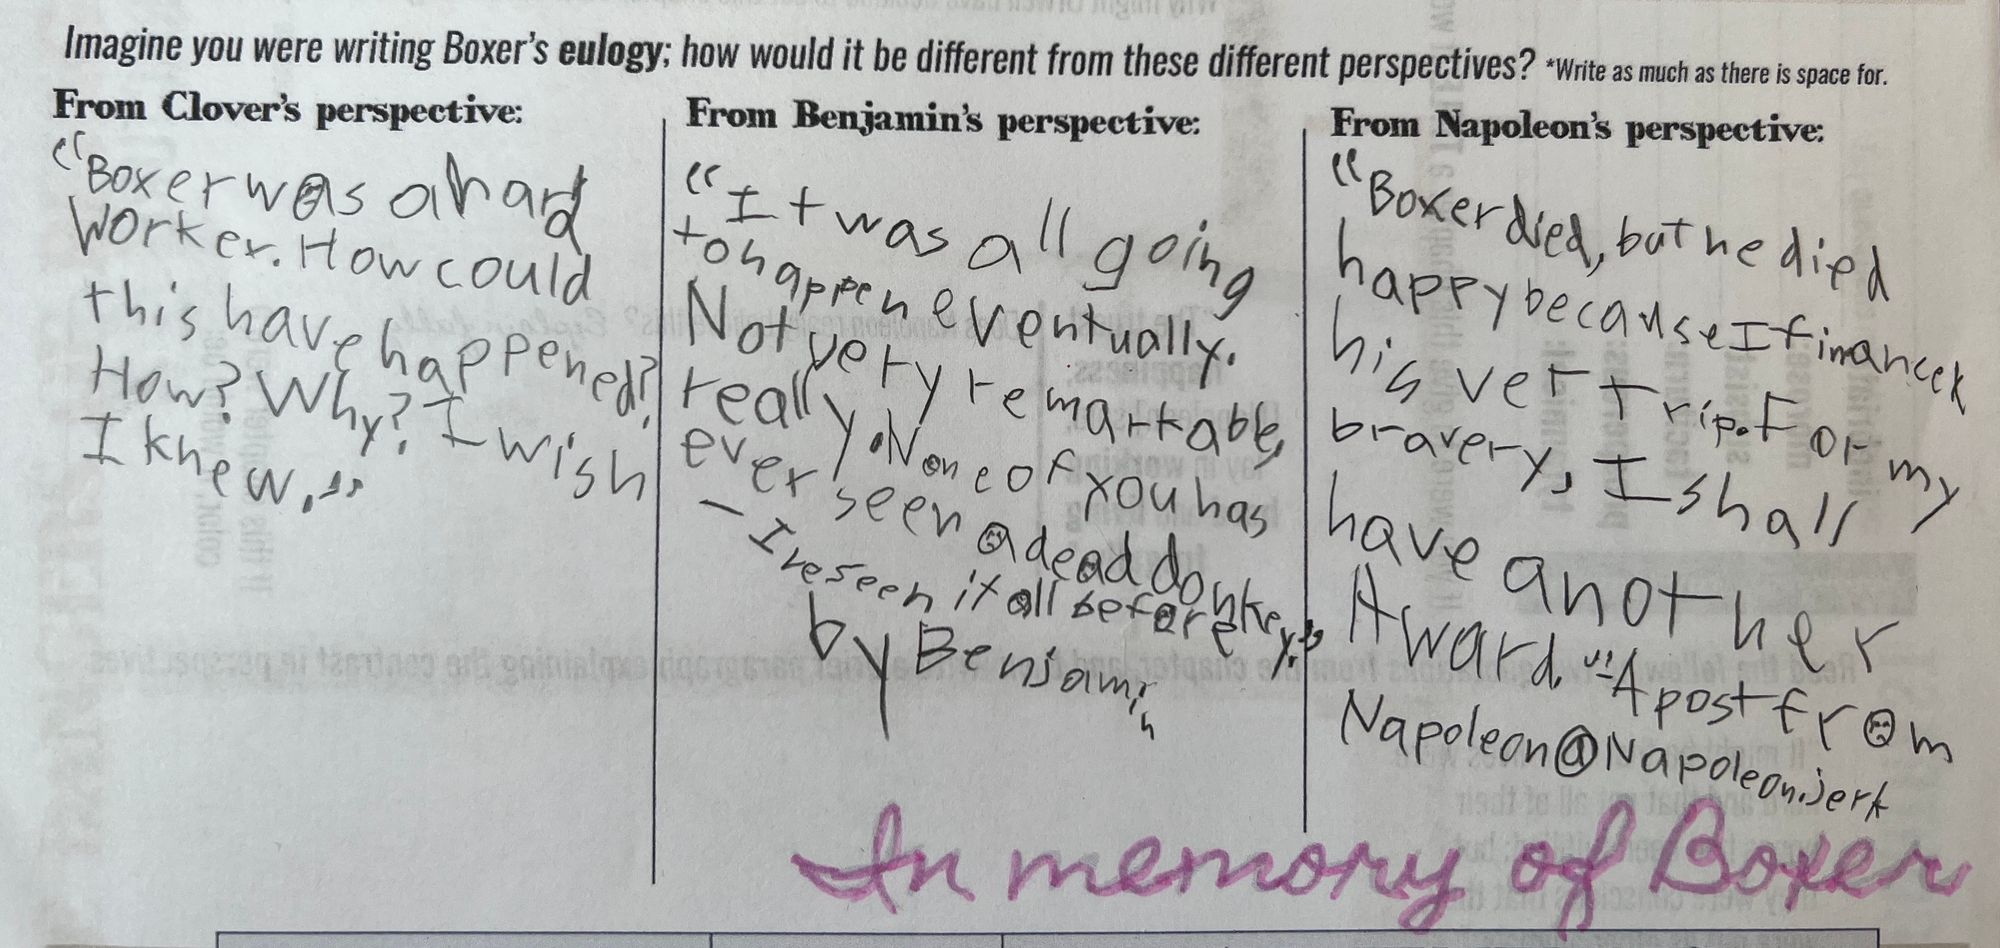 Imagine you were writing Boxer's eulogy; how would it be different from these different perspectives? *Write as much as there is space for.
From Clover's perspective:
"Boxer was a hard
worker. How could
this have happened?
How? Why? I wish
I knew."
From Benjamin's perspective:
"It was all going
to happen eventually.
Not very remarkable,
really. None of you has
ever seen a dead donkey."
- I've seen it all before
by Benjamin
From Napoleon's perspective:
"Boxer died, but he died
happy because I financed
his vet trip. For my
bravery, I shall
have another
Award." - A post from
Napoleon@Napoleon.jerk
In memory of Boxer